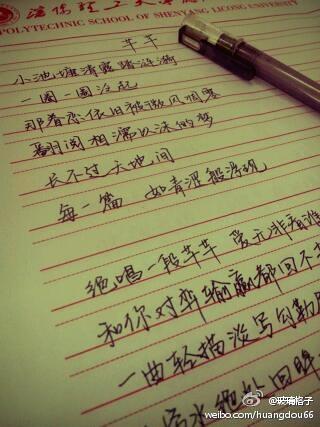 沈阳理工大学
POLYTECHNIC SCHOOL OF SHENYANG LIGONG UNIVERSIT
芊芊
小池塘清澈着涟漪
一圈一圈泛起
那眷恋依旧被微风
翻阅相濡以沫的梦
长不过天地间
每一篇 如青涩般浮现
绝唱一段芊芊 爱无非看谁
和你对弈输赢都回不
一曲轻描淡写勾勒
流水
@玻璃格子
weibo.com/huangdou66